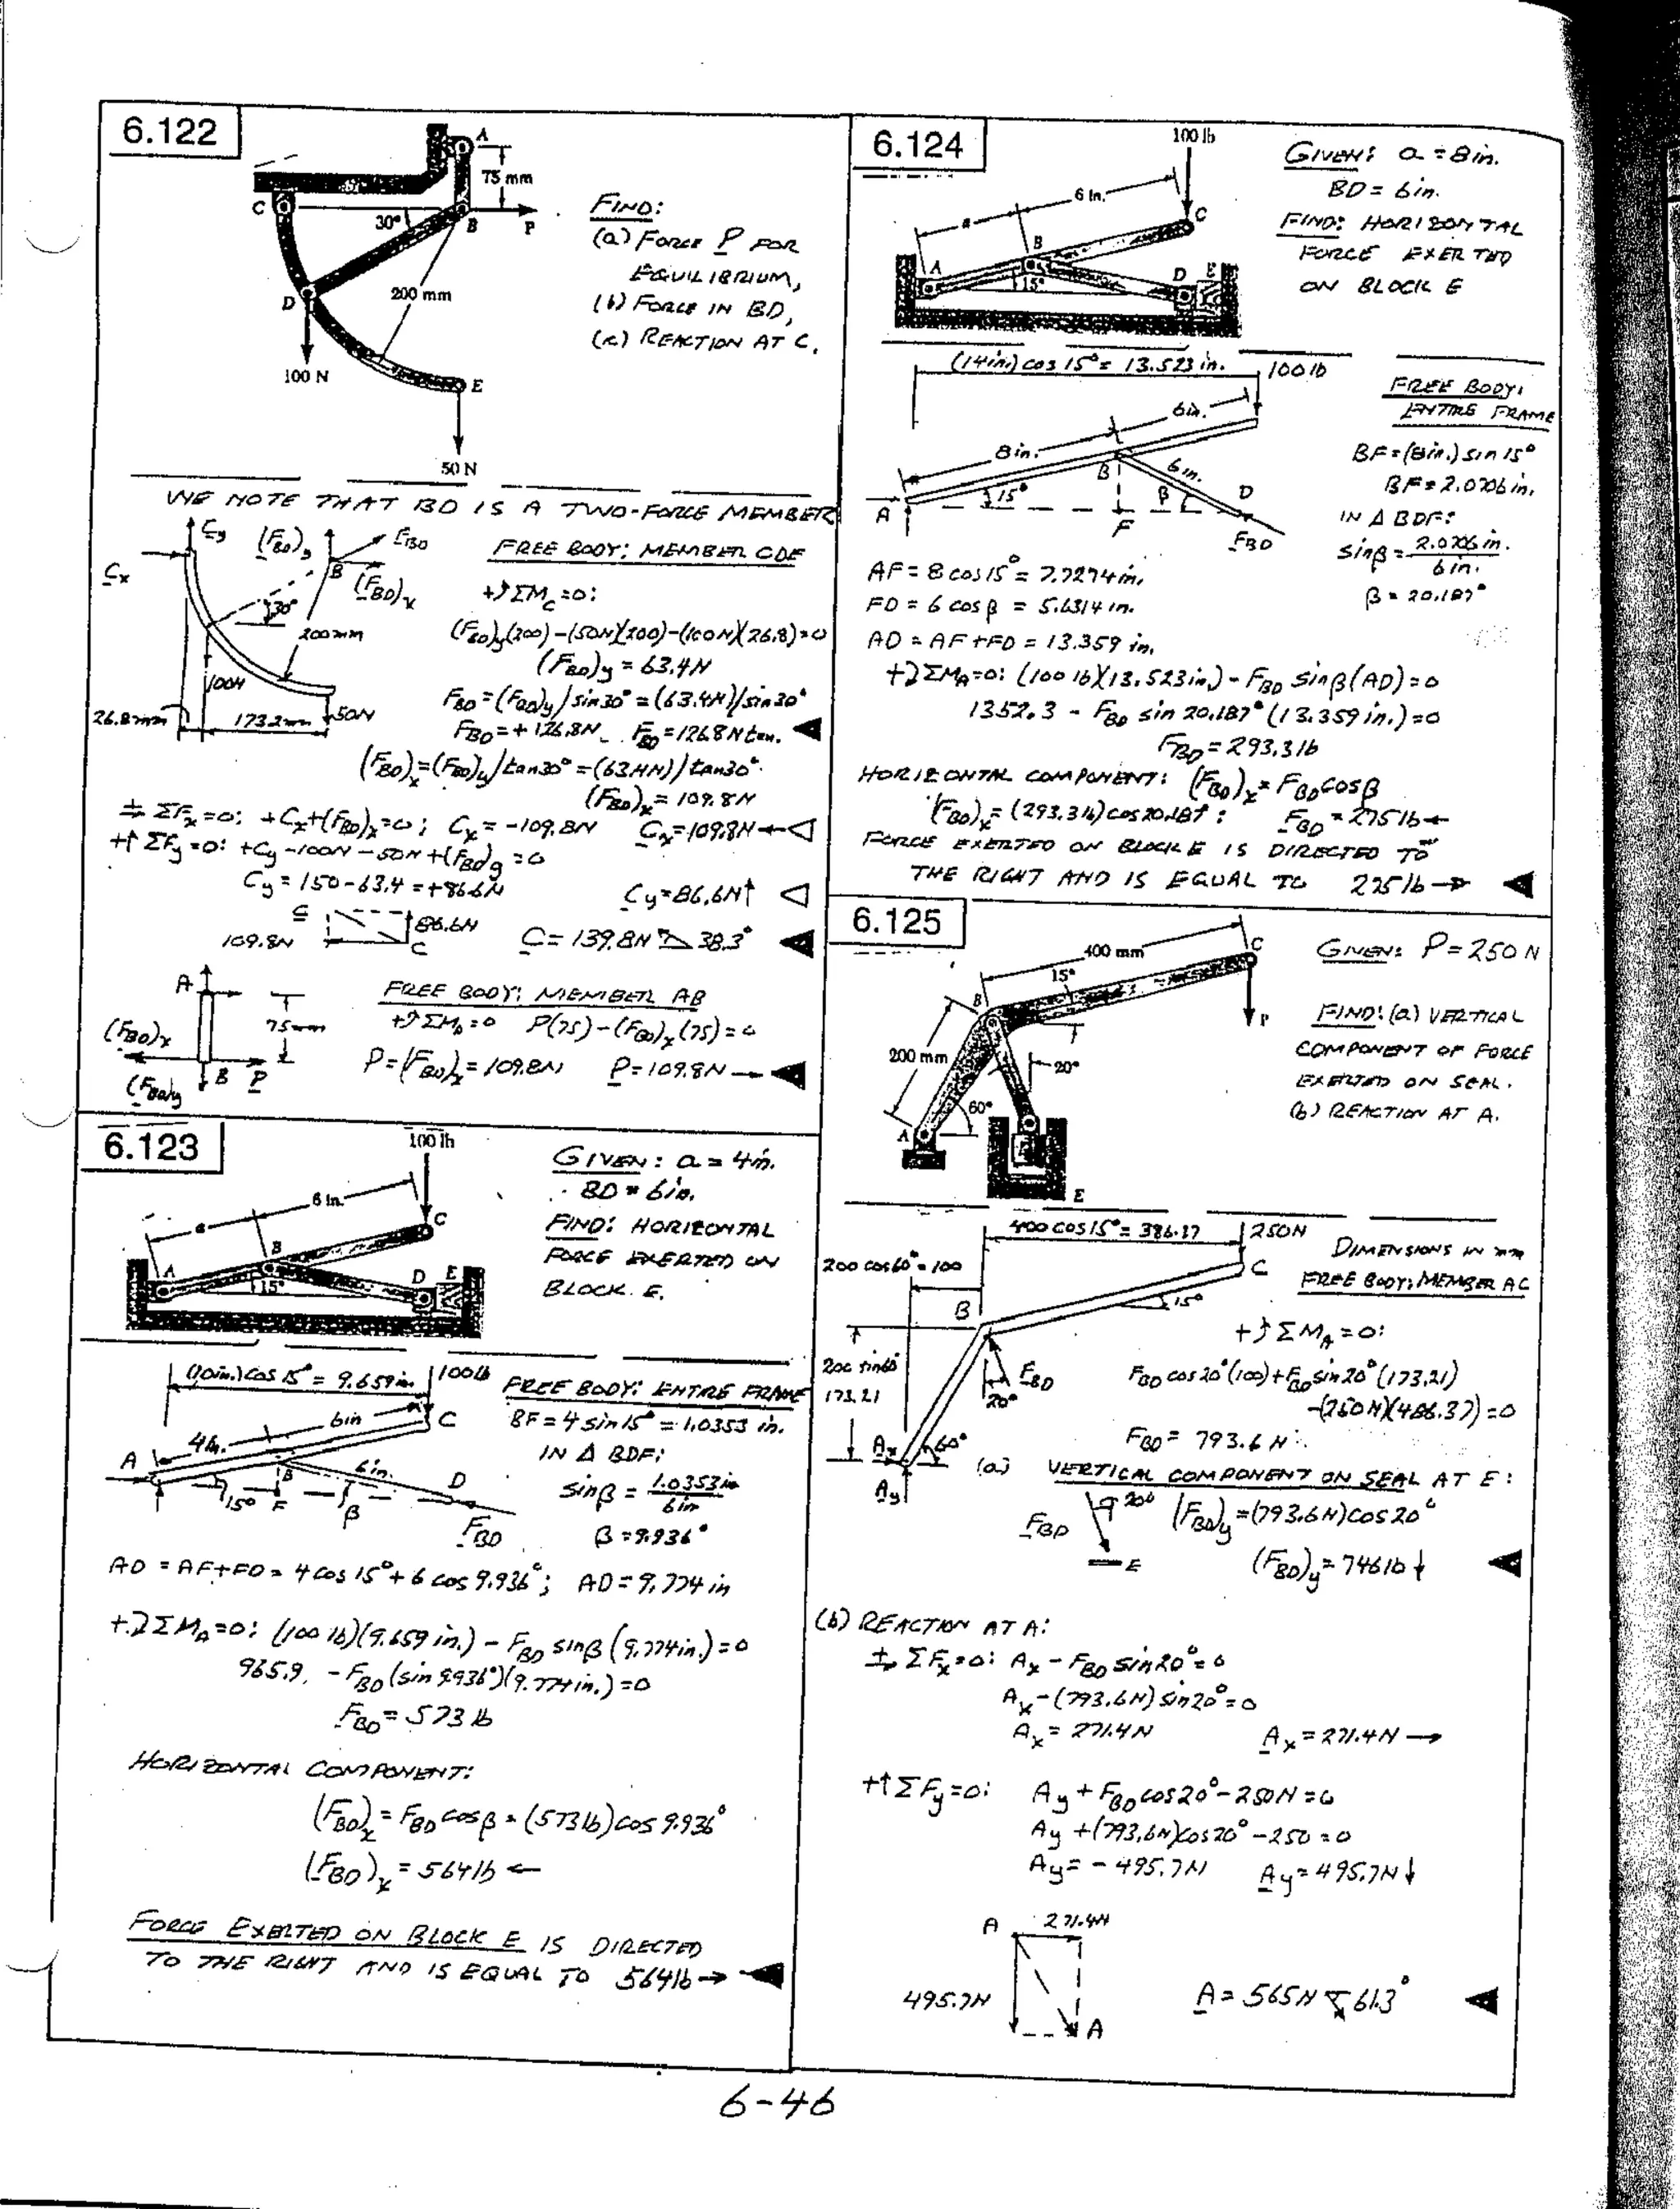 6.122
A
75 mm
C
30°
B
P
D
200 mm
100 N
E
50 N
FIND:
(a) FORCE P FOR
EQUILIBRIUM,
(b) FORCE IN BD,
(c) REACTION AT C.
WE NOTE THAT BD IS A TWO-FORCE MEMBER
FREE BODY: MEMBER CDE
Cy
(FBD)y
FBD
Cx
B
(FBD)x
30°
200 mm
100N
26.8 mm
173.2 mm
50N
+↺ΣMC=0:
(FBD)y(200)-(50N)(200)-(100N)(26.8)=0
(FBD)y = 63.4N
FBD = (FBD)y/sin30° = (63.4N)/sin30°
FBD = +126.8N. FBD = 126.8N ten. ◀
(FBD)x = (FBD)y/tan30° = (63.4N)/tan30°
(FBD)x = 109.8N
ΣFx=0: +Cx+(FBD)x=0; Cx = -109.8N Cx=109.8N ← ◁
+↑ΣFy=0: +Cy-100N-50N+(FBD)y=0
Cy = 150-63.4 = +86.6N
Cy=86.6N↑ ◁
C
86.6N
109.8N
C
C = 139.8N 38.3° ◀
A
FREE BODY: MEMBER AB
75 mm
(FBD)x
B
P
(FBD)y
P(75)-(FBD)x(75)=0
P = (FBD)x = 109.8N P = 109.8N → ◀
6.123
100 lb
6 in.
a
A
B
C
D
E
15°
GIVEN: a = 4 in.
BD = 6 in.
FIND: HORIZONTAL
FORCE EXERTED ON
BLOCK E.
(10in.) cos 15° = 9.659 in.
100 lb
6in
C
4in.
A
B
6 in.
D
15°
F
β
FBD
FREE BODY: ENTIRE FRAME
BF = 4 sin 15° = 1.0353 in.
IN Δ BDF:
sin β = 1.0353 in / 6 in
β = 9.936°
AD = AF+FD = 4 cos 15° + 6 cos 9.936°; AD = 9.774 in
+↻ΣMA=0: (100 lb)(9.659 in.) - FBD sin β (9.774 in.) = 0
965.9. - FBD (sin 9.936°)(9.774 in.) = 0
FBD = 573 lb
HORIZONTAL COMPONENT:
(FBD)x = FBD cos β = (573 lb) cos 9.936°
(FBD)x = 564 lb ←
FORCE EXERTED ON BLOCK E IS DIRECTED
TO THE RIGHT AND IS EQUAL TO 564 lb → ◀
6.124
100 lb
6 in.
a
A
B
C
D
E
15°
GIVEN: a = 8 in.
BD = 6 in.
FIND: HORIZONTAL
FORCE EXERTED
ON BLOCK E
(14in) cos 15° = 13.523 in.
100 lb
6in.
8 in.
B
6 in.
15°
β
D
A
F
FBD
FREE BODY:
ENTIRE FRAME
BF = (8in.) sin 15°
BF = 2.0706 in.
IN Δ BDF:
sin β = 2.0706 in. / 6 in.
β = 20.187°
AF = 8 cos 15° = 7.7274 in.
FD = 6 cos β = 5.6314 in.
AD = AF + FD = 13.359 in.
+↻ΣMA=0: (100 lb)(13.523 in.) - FBD sin β (AD) = 0
1352.3 - FBD sin 20.187° (13.359 in.) = 0
FBD = 293.3 lb
HORIZONTAL COMPONENT: (FBD)x = FBD cos β
(FBD)x = (293.3 lb) cos 20.187°: FBD = 275 lb ←
FORCE EXERTED ON BLOCK E IS DIRECTED TO
THE RIGHT AND IS EQUAL TO 275 lb → ◀
6.125
400 mm
C
15°
B
P
200 mm
20°
60°
A
E
GIVEN: P = 250 N
FIND: (a) VERTICAL
COMPONENT OF FORCE
EXERTED ON SEAL.
(b) REACTION AT A.
400 cos 15° = 386.37
250N
200 cos 60° = 100
C
B
15°
200 sin 60°
173.21
FBD
20°
Ax
60°
Ay
DIMENSIONS IN mm
FREE BODY: MEMBER AC
+↺ΣMA=0:
FBD cos 20° (100) + FBD sin 20° (173.21)
-(250 N)(486.37) = 0
FBD = 793.6 N
(a) VERTICAL COMPONENT ON SEAL AT E:
20°
FBD
E
(FBD)y = (793.6 N) cos 20°
(FBD)y = 746 lb ↓ ◀
(b) REACTION AT A:
ΣFx=0: Ax - FBD sin 20° = 0
Ax - (793.6 N) sin 20° = 0
Ax = 271.4 N Ax = 271.4 N →
+↑ΣFy=0: Ay + FBD cos 20° - 250 N = 0
Ay + (793.6N) cos 20° - 250 = 0
Ay = -495.7 N Ay = 495.7 N ↓
A
271.4N
495.7N
A
A = 565 N 61.3° ◀
6-46